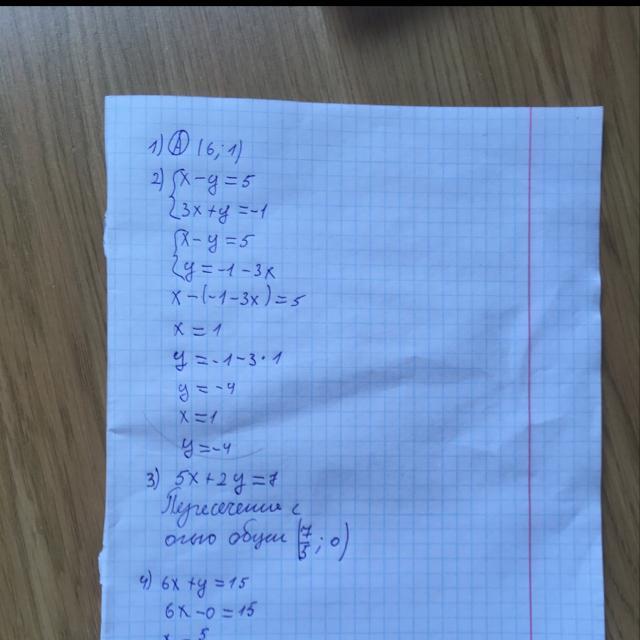 1) А (6;1)
2) {x-y=5
{3x+y=-1
{x-y=5
{y=-1-3x
x-(-1-3x)=5
x=1
y=-1-3·1
y=-4
x=1
y=-4
3) 5x+2y=7
Пересечение с
осью абцис (7/5;0)
4) 6x+y=15
6x-0=15